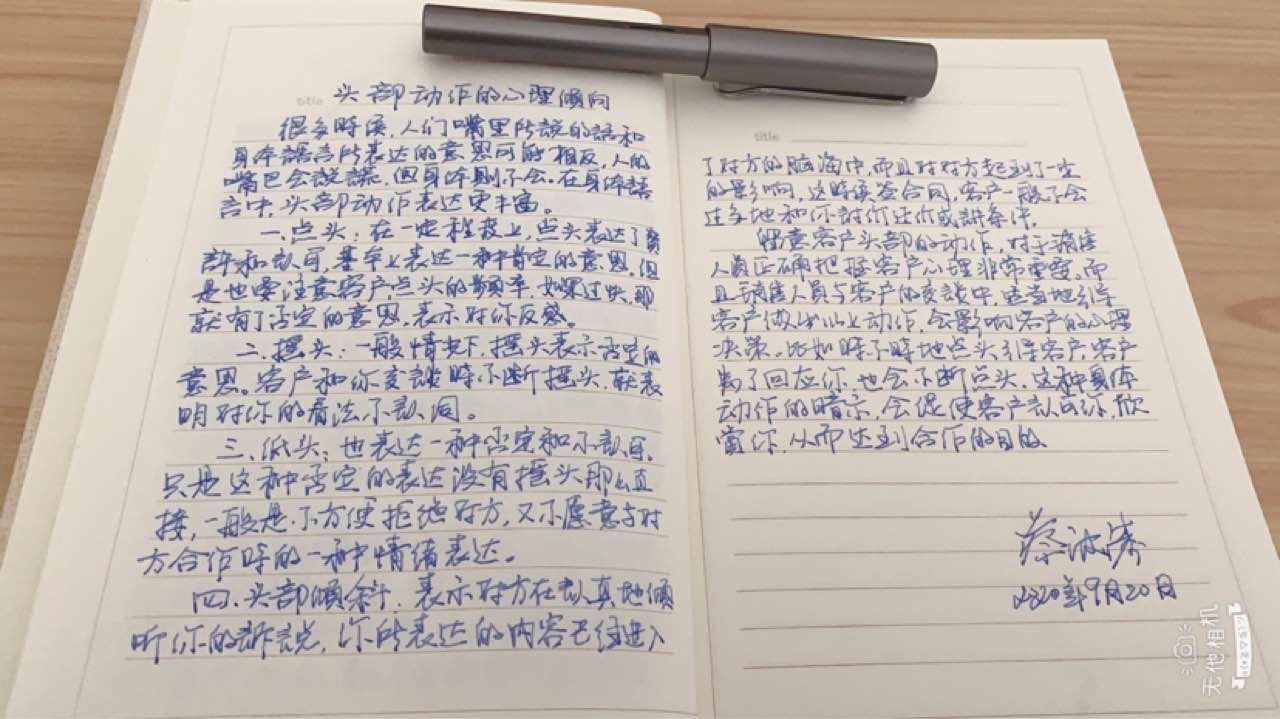 title 头部动作的心理倾向
很多时候,人们嘴里所说的話和
身体語言所表达的意思可能相反,人的
嘴巴会説謊,但身体则不会。在身体語
言中,头部动作表达更丰富。
一、点头:在一定程度上,点头表达了
許和认可,基本上表达一种肯定的意思,但
是也要注意客户点头的频率,如果过快,那
就有了否定的意思,表示对你反感。
二、摇头:一般情况下,摇头表示否定的
意思。客户和你交談時不断摇头,就表
明对你的看法不认同。
三、低头:也表达一种否定和不认可,
只是这种否定的表达没有摇头那么直
接,一般是不方便拒绝对方,又不愿意与对
方合作时的一种情绪表达。
四、头部倾斜,表示对方在认真地倾
听你的訴説,你所表达的内容已经进入
title
了对方的脑海中,而且对对方起到了一定
的影响,这时候签合同,客户一般不会
过多地和你討价还价或講条件。
留意客户头部的动作,对于销售
人员正确把握客户心理非常重要,而
且销售人员与客户的交談中,适当地引导
客户做出以上动作,会影响客户的心理
决策。比如時不時地点头引导客户,客户
为了回应你,也会不断点头,这种身体
动作的暗示,会促使客户认同你,欣
賞你,从而达到合作的目的
2020年9月20日
无他相机